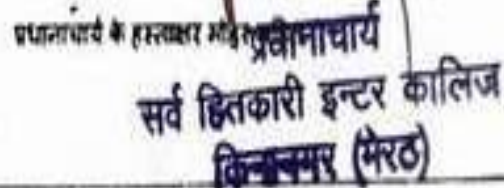 प्रधानाचार्य के हस्ताक्षर
प्रधानाचार्य
सर्व हितकारी इन्टर कालिज
(मेरठ)